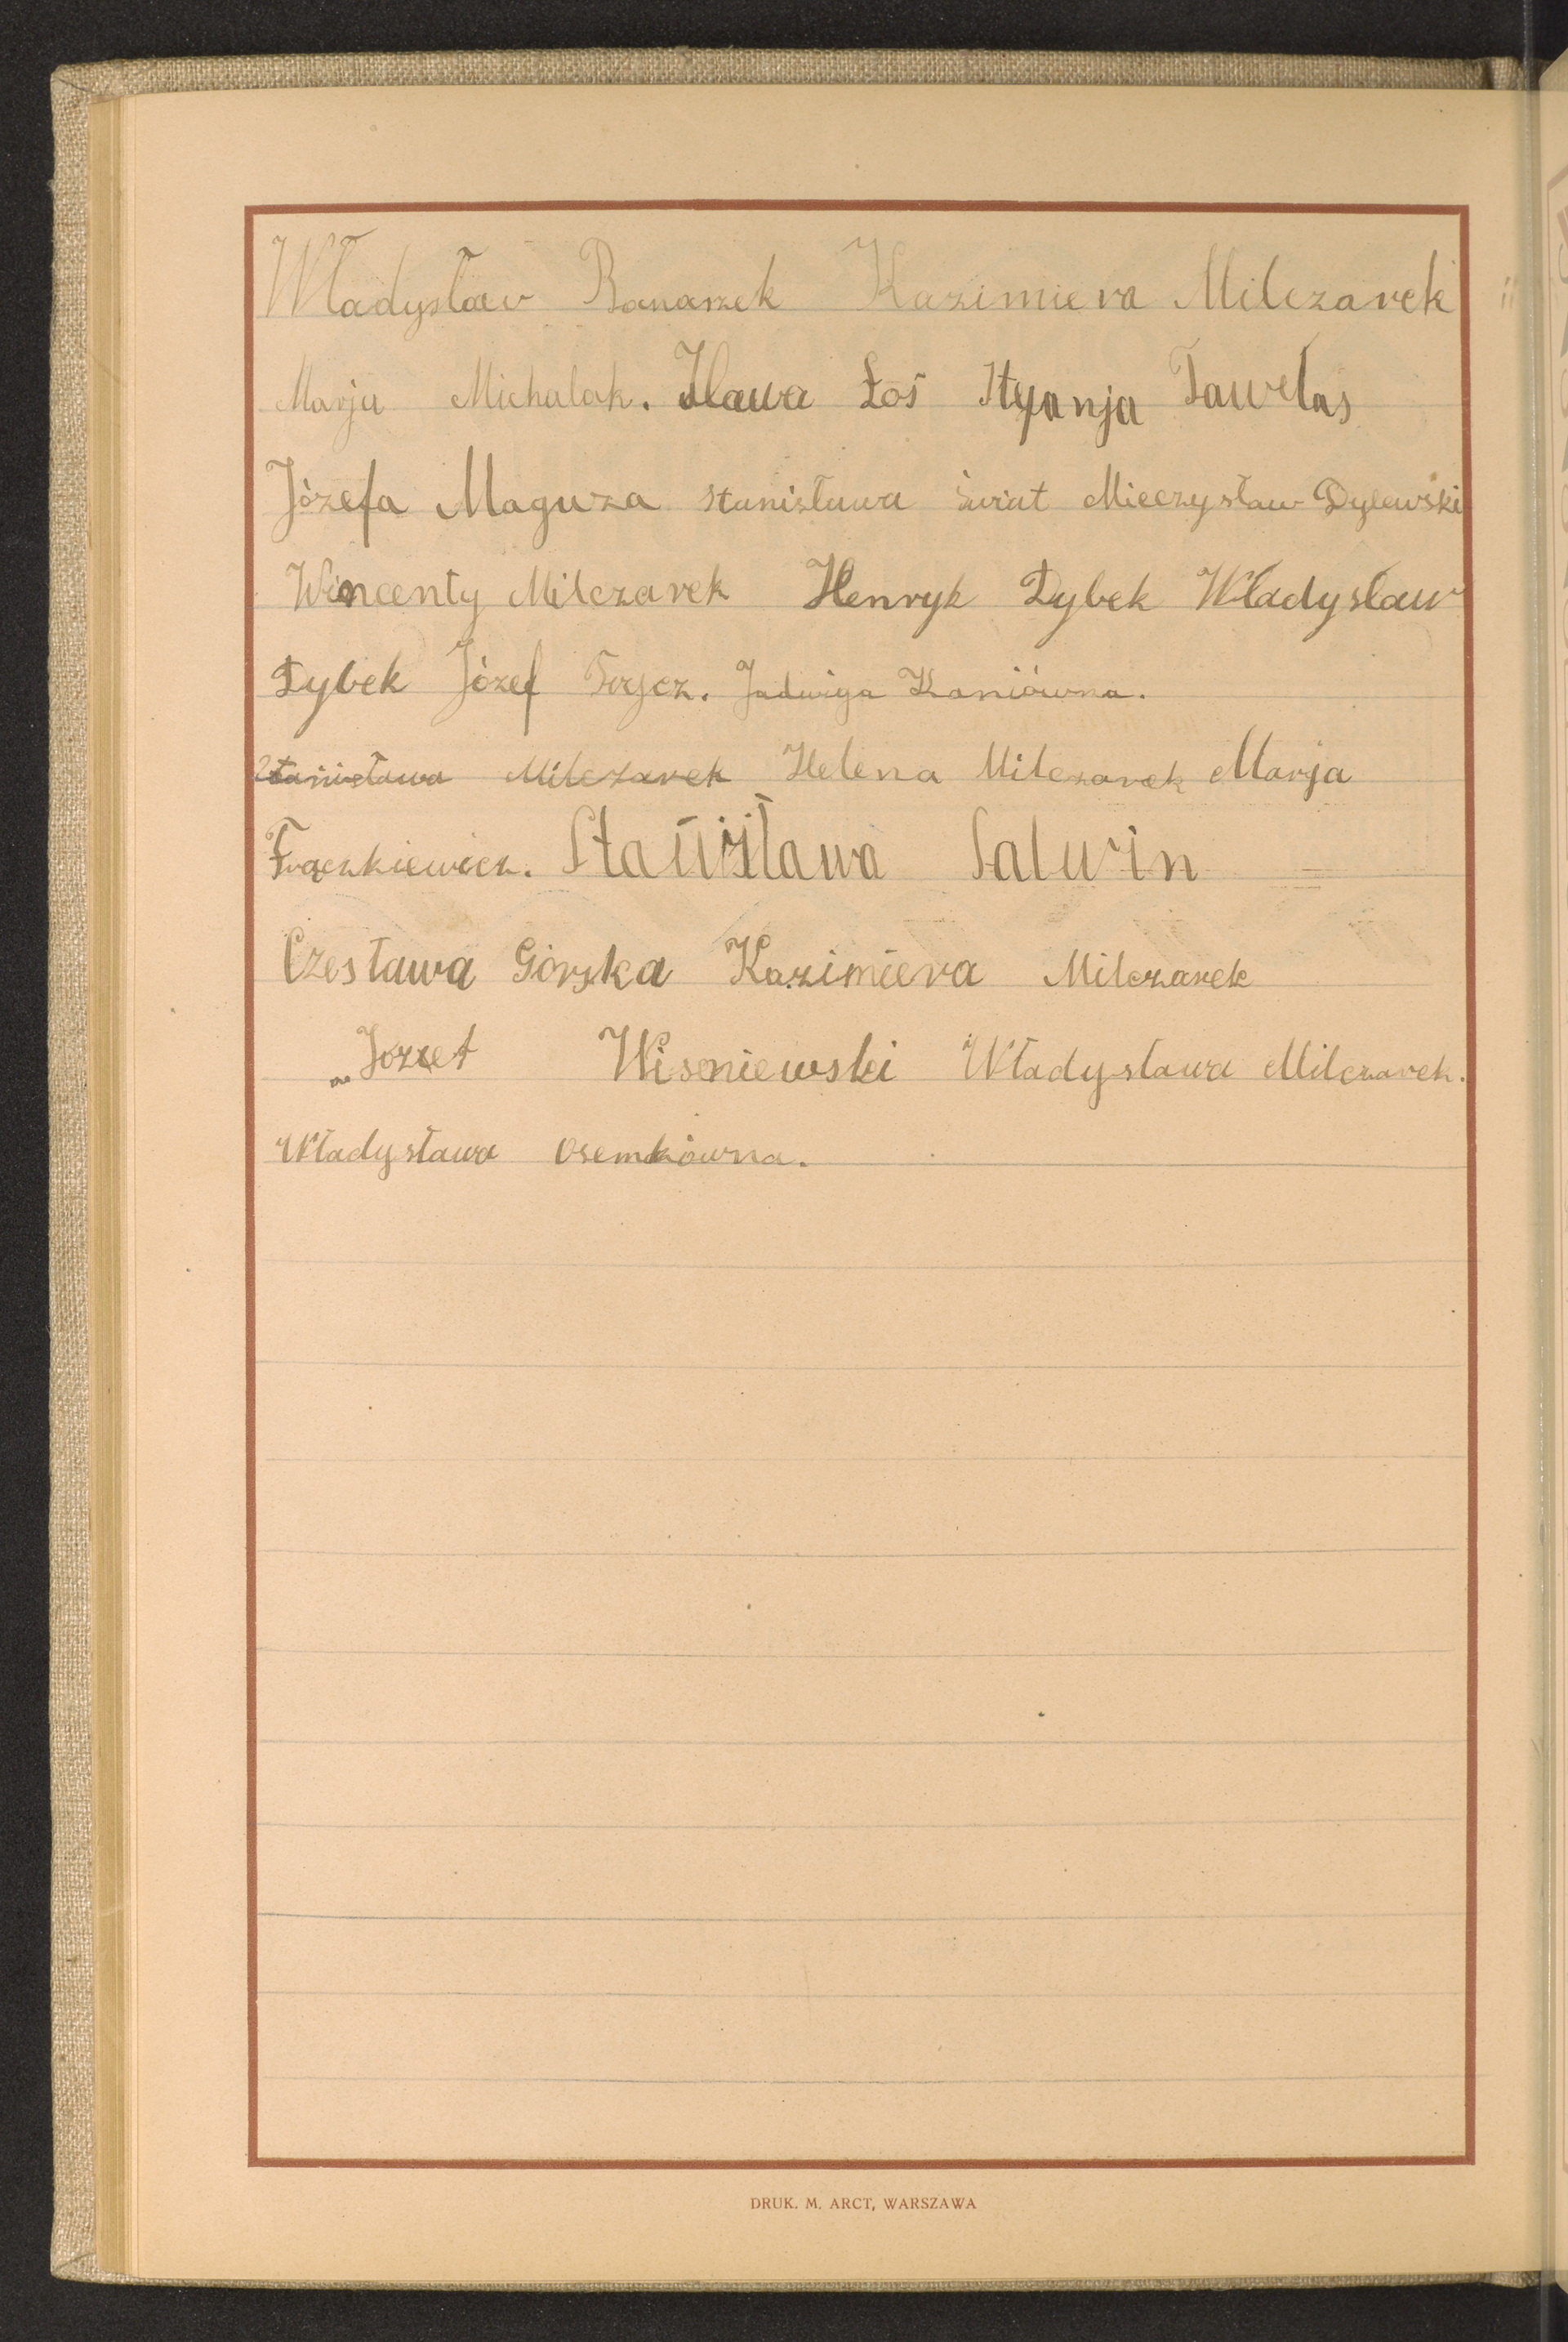 Władysław Banaszek Kazimiera Milczarek
Marja Michalak. Sława Łoś Pawelas
Józefa Maguza Stanisława Świat Mieczysław Dylewski
Wincenty Milczarek Henryk Dybek Władysław
Dybek Józef Jadwiga Kaniówna.
Stanisława Milczarek Helena Milczarek Marja
Frączkiewicz. Stanisława Salwin
Czesława Górska Kazimiera Milczarek
Józef Wiseniewski Władysława Milczarek.
Władysława Osemkówna.
DRUK. M. ARCT, WARSZAWA